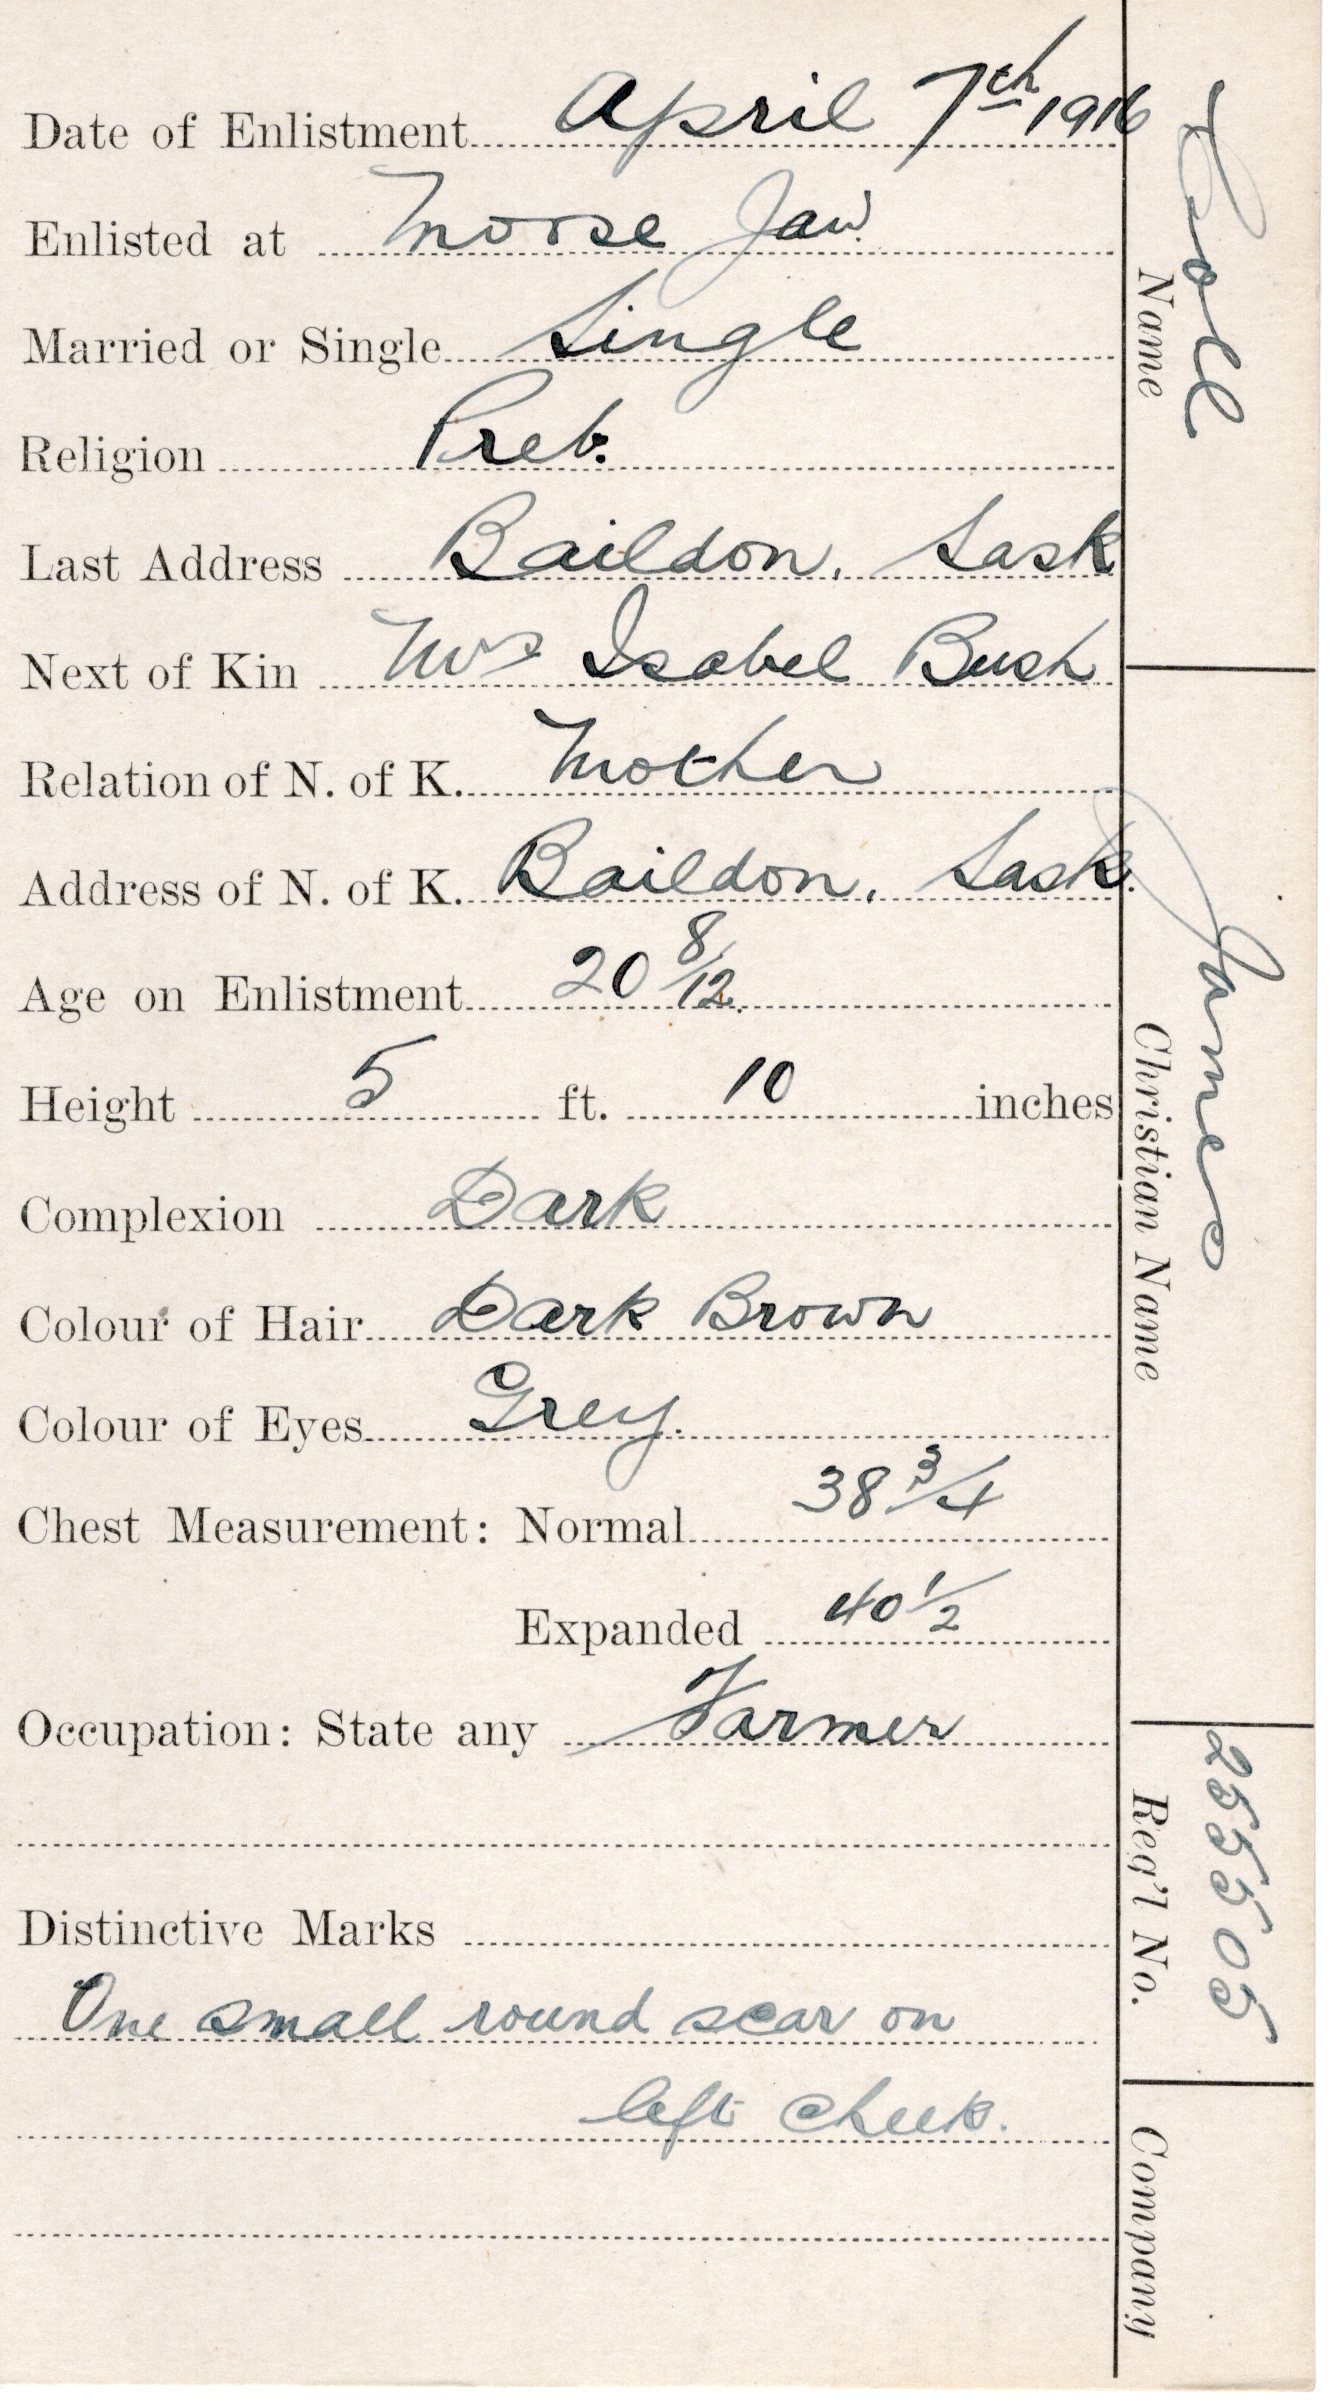 Date of Enlistment April 7th 1916
Enlisted at Moose Jaw.
Married or Single Single
Religion Preb.
Last Address Baildon, Sask
Next of Kin Mrs Isabel Bush
Relation of N. of K. Mother
Address of N. of K. Baildon, Sask.
Age on Enlistment 20 8/12.
Height 5 ft. 10 inches
Complexion Dark
Colour of Hair Dark Brown
Colour of Eyes Grey.
Chest Measurement: Normal 38 3/4
Expanded 40 1/2
Occupation: State any Farmer
Distinctive Marks
One small round scar on
left cheek.
Name
James
Christian Name
255505
Reg'l No.
Company